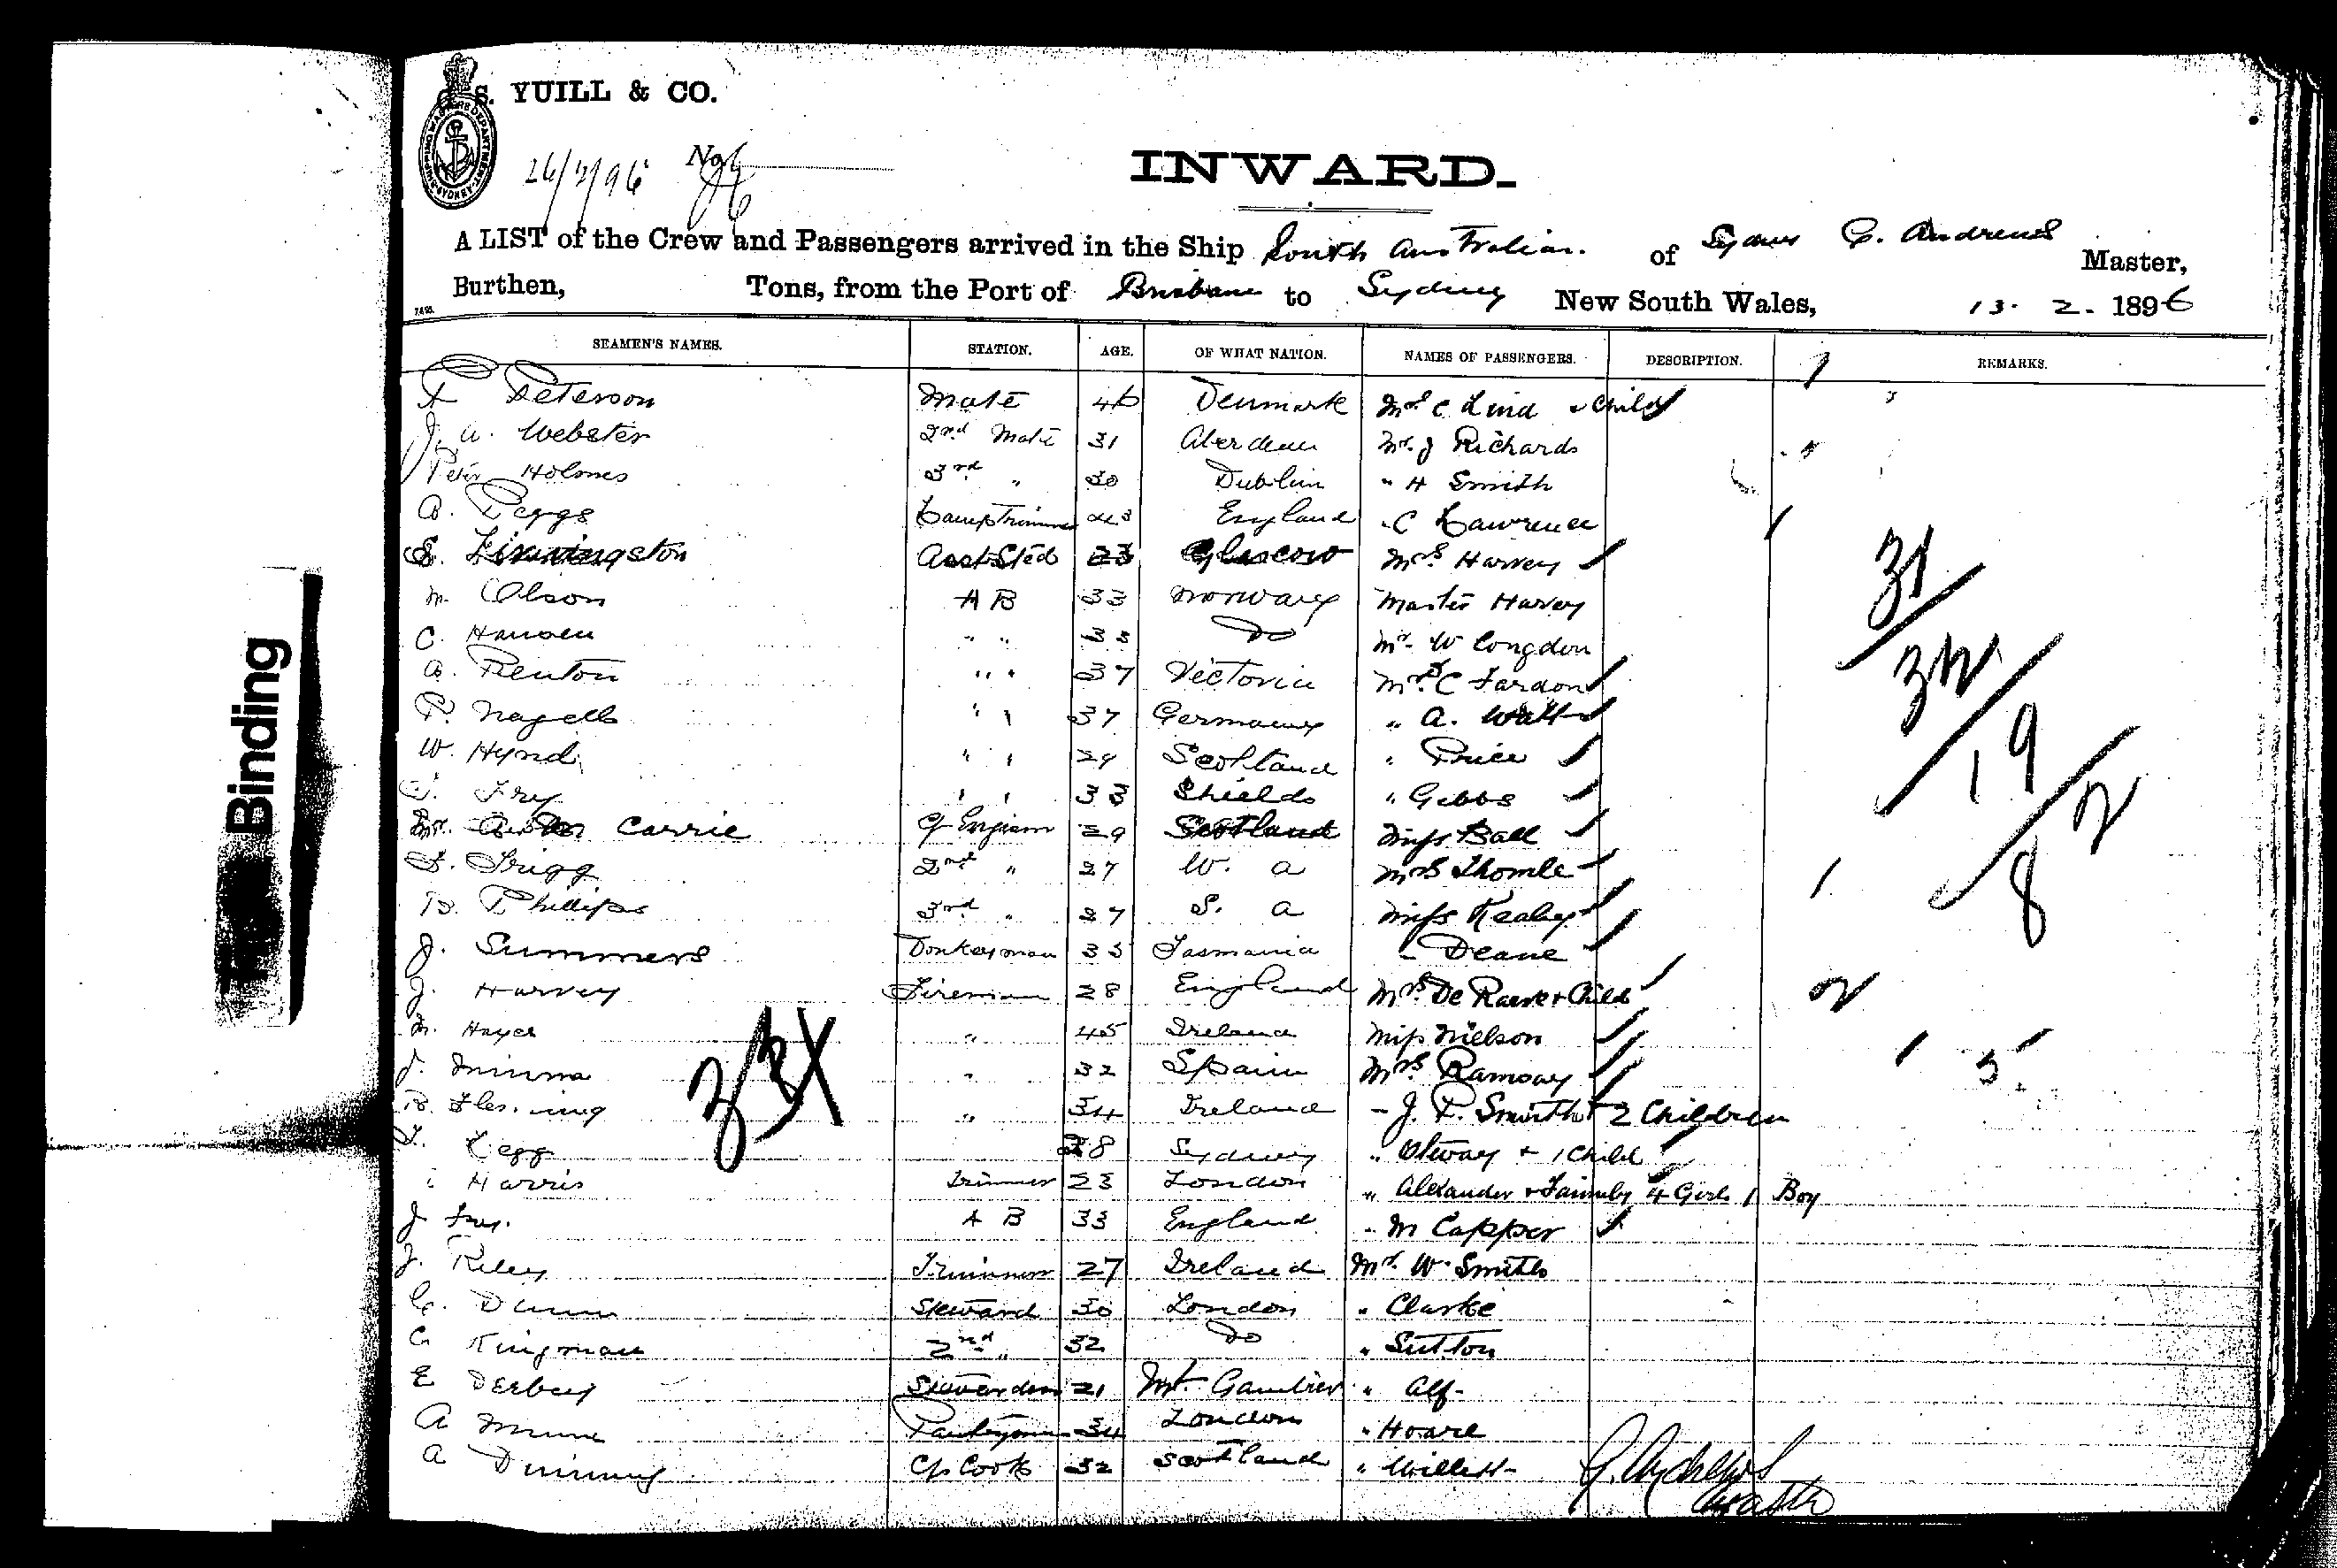 S. YUILL & CO.
26/2/96 No
INWARD.
A LIST of the Crew and Passengers arrived in the Ship South Australian. of Sydney G. Andrews Master,
Burthen, Tons, from the Port of Brisbane to Sydney New South Wales, 13. 2. 1896
SEAMEN'S NAMES. STATION. AGE. OF WHAT NATION. NAMES OF PASSENGERS. DESCRIPTION. REMARKS.
Peterson Mate 46 Denmark Mrs C Lind & Child
J. A. Webster 2nd Mate 31 Aberdeen Mr. J Richards
Peter Holmes 3rd " 30 Dublin " H Smith
A. Peggs Lamp Trimmer 43 England " C Lawrence
S. Livingston Asst Sted 23 Glascow Mrs Harvey
M. Olson A B 33 Norway Master Harvey
C. Hansen " " 33 Do Mr. W Congdon
A. Renton " " 37 Victoria Mrs C Fardon
P. Nagells " " 37 Germany " A. Watt
W. Hynd " " 29 Scotland " Price
Frey " " 33 Shields " Gibbs
Carrie Cf Engineer 29 Scotland Miss Ball
F. Trigg 2nd " 27 W. A Mrs Thomle
B. Phillips 3rd " 27 S. A Miss Kealey
J. Summers Donkeyman 35 Tasmania " Deane
J. Harvey Fireman 28 England Mrs De Raeve & Child
M. Hayes " 45 Ireland Miss Nielson
J. " 32 Spain Mrs Ramsay
" 34 Ireland " J. P. Smith + 2 Children
Legg 28 Sydney " Otway + 1 Child
Harris Trimmer 23 London " Alexander & Family 4 Girls 1 Boy
J A B 33 England " M Capper
J. Riley Trimmer 27 Ireland Mr. W. Smith
G. Dunn Steward 30 London " Clarke
C Kingman 2nd " 32 Do " Sutton
E Derbey Stewardess 21 Mt. Gambier " Alf
A Pantryman 34 London " Hoare
A Cf. Cook 32 Scotland " Willett
31
32
19
2
8
1
2
1 5
G. Andrews
Master
Binding